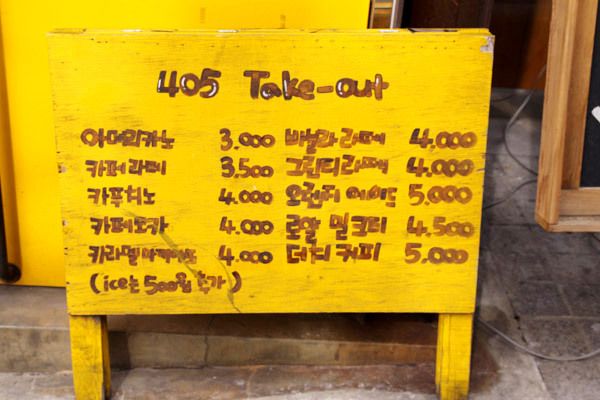 405 Take-out
아메리카노 3.000 바닐라 라떼 4.000
카페라떼 3.500 그린티라떼 4.000
카푸치노 4.000 오렌지 에이드 5.000
카페모카 4.000 로얄 밀크티 4.500
카라멜마끼아또 4.000 더치커피 5.000
(ice는 500원 추가)